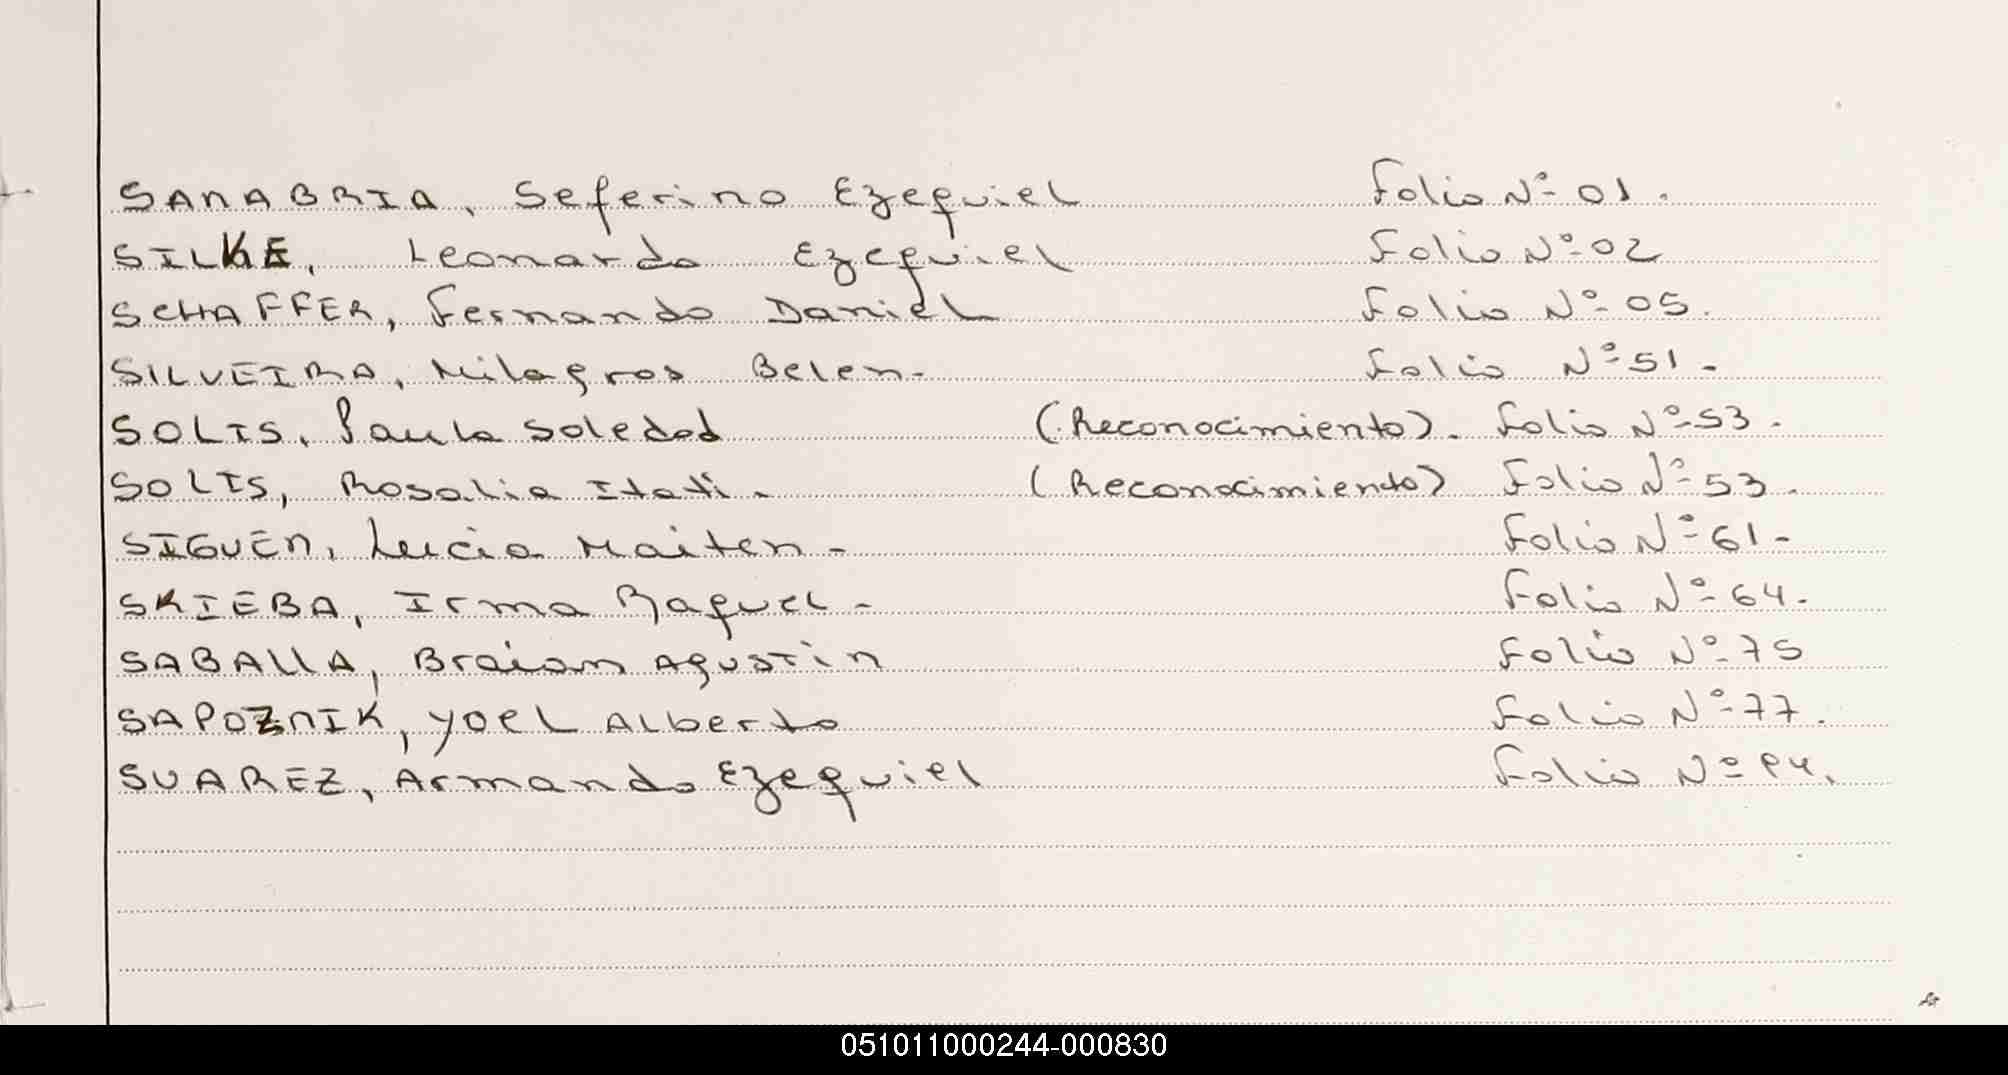 SANABRIA, Seferino Ezequiel Folio Nº 01.
SILKE, Leonardo Ezequiel Folio Nº 02
SCHAFFER, Fernando Daniel Folio Nº 05.
SILVEIRA, Milagros Belen. Folio Nº 51.
SOLIS, Paula Soledad (Reconocimiento). Folio Nº 53.
SOLIS, Rosalia Itati. (Reconocimiento) Folio Nº 53.
SIGUEN, Lucia Maiten - Folio Nº 61-
SKIEBA, Irma Raquel - Folio Nº 64.
SABALLA, Braian Agustin Folio Nº 75
SAPOZNIK, Yoel Alberto Folio Nº 77.
SUAREZ, Armando Ezequiel Folio Nº
051011000244-000830